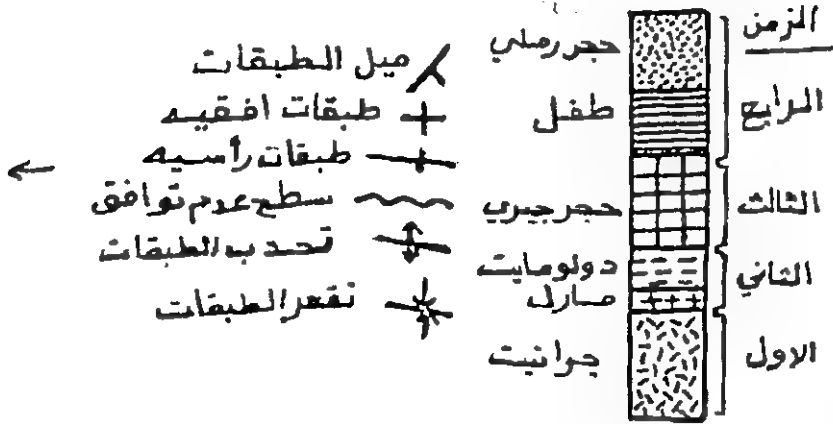 الزمن
الرابع
الثالث
الثاني
الاول
حجر رملي
طفل
حجر جيري
دولومايت
مارل
جرانيت
ميل الطبقات
طبقات افقيه
طبقات رأسيه
سطح عدم توافق
تحدب الطبقات
تقعر الطبقات